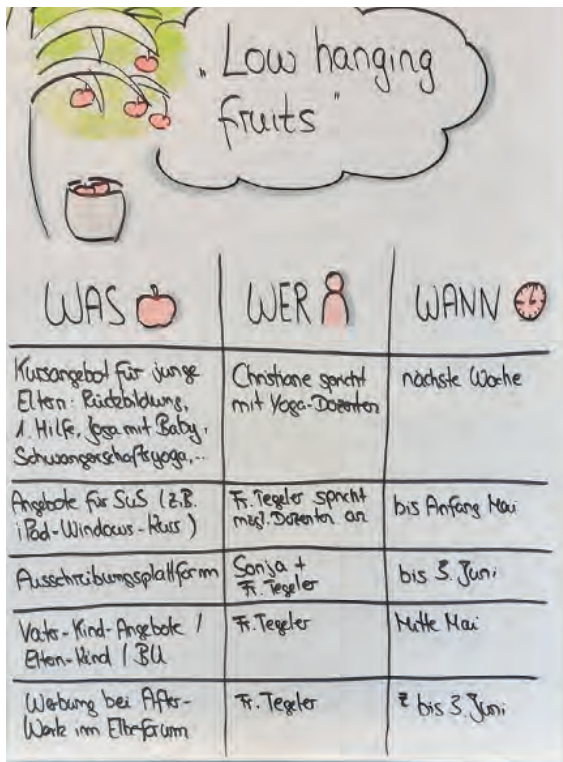 „Low hanging
fruits"
WAS
WER
WANN
Kursangebot für junge
Eltern: Rückbildung,
1. Hilfe, Yoga mit Baby,
Schwangerschaftsyoga,...
Christiane spricht
mit Yoga-Dozenten
nächste Woche
Angebote für SuS (z.B.
iPad-Windows-Kurs)
Fr. Tegeler spricht
mgl. Dozenten an
bis Anfang Mai
Ausschreibungsplattform
Sonja +
Fr. Tegeler
bis 3. Juni
Vater-Kind-Angebote /
Eltern-Kind / BU
Fr. Tegeler
Mitte Mai
Werbung bei After-
Work im Elbeforum
Fr. Tegeler
bis 3. Juni